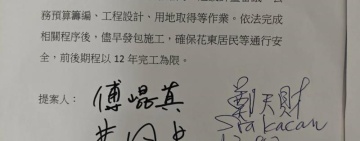 務預算籌編、工程設計、用地取得等作業。依法完成
相關程序後，儘早發包施工，確保花東居民等通行安
全，前後期程以12年完工為限。
提案人： 傅崐萁 鄭天財
Sra Kacaw